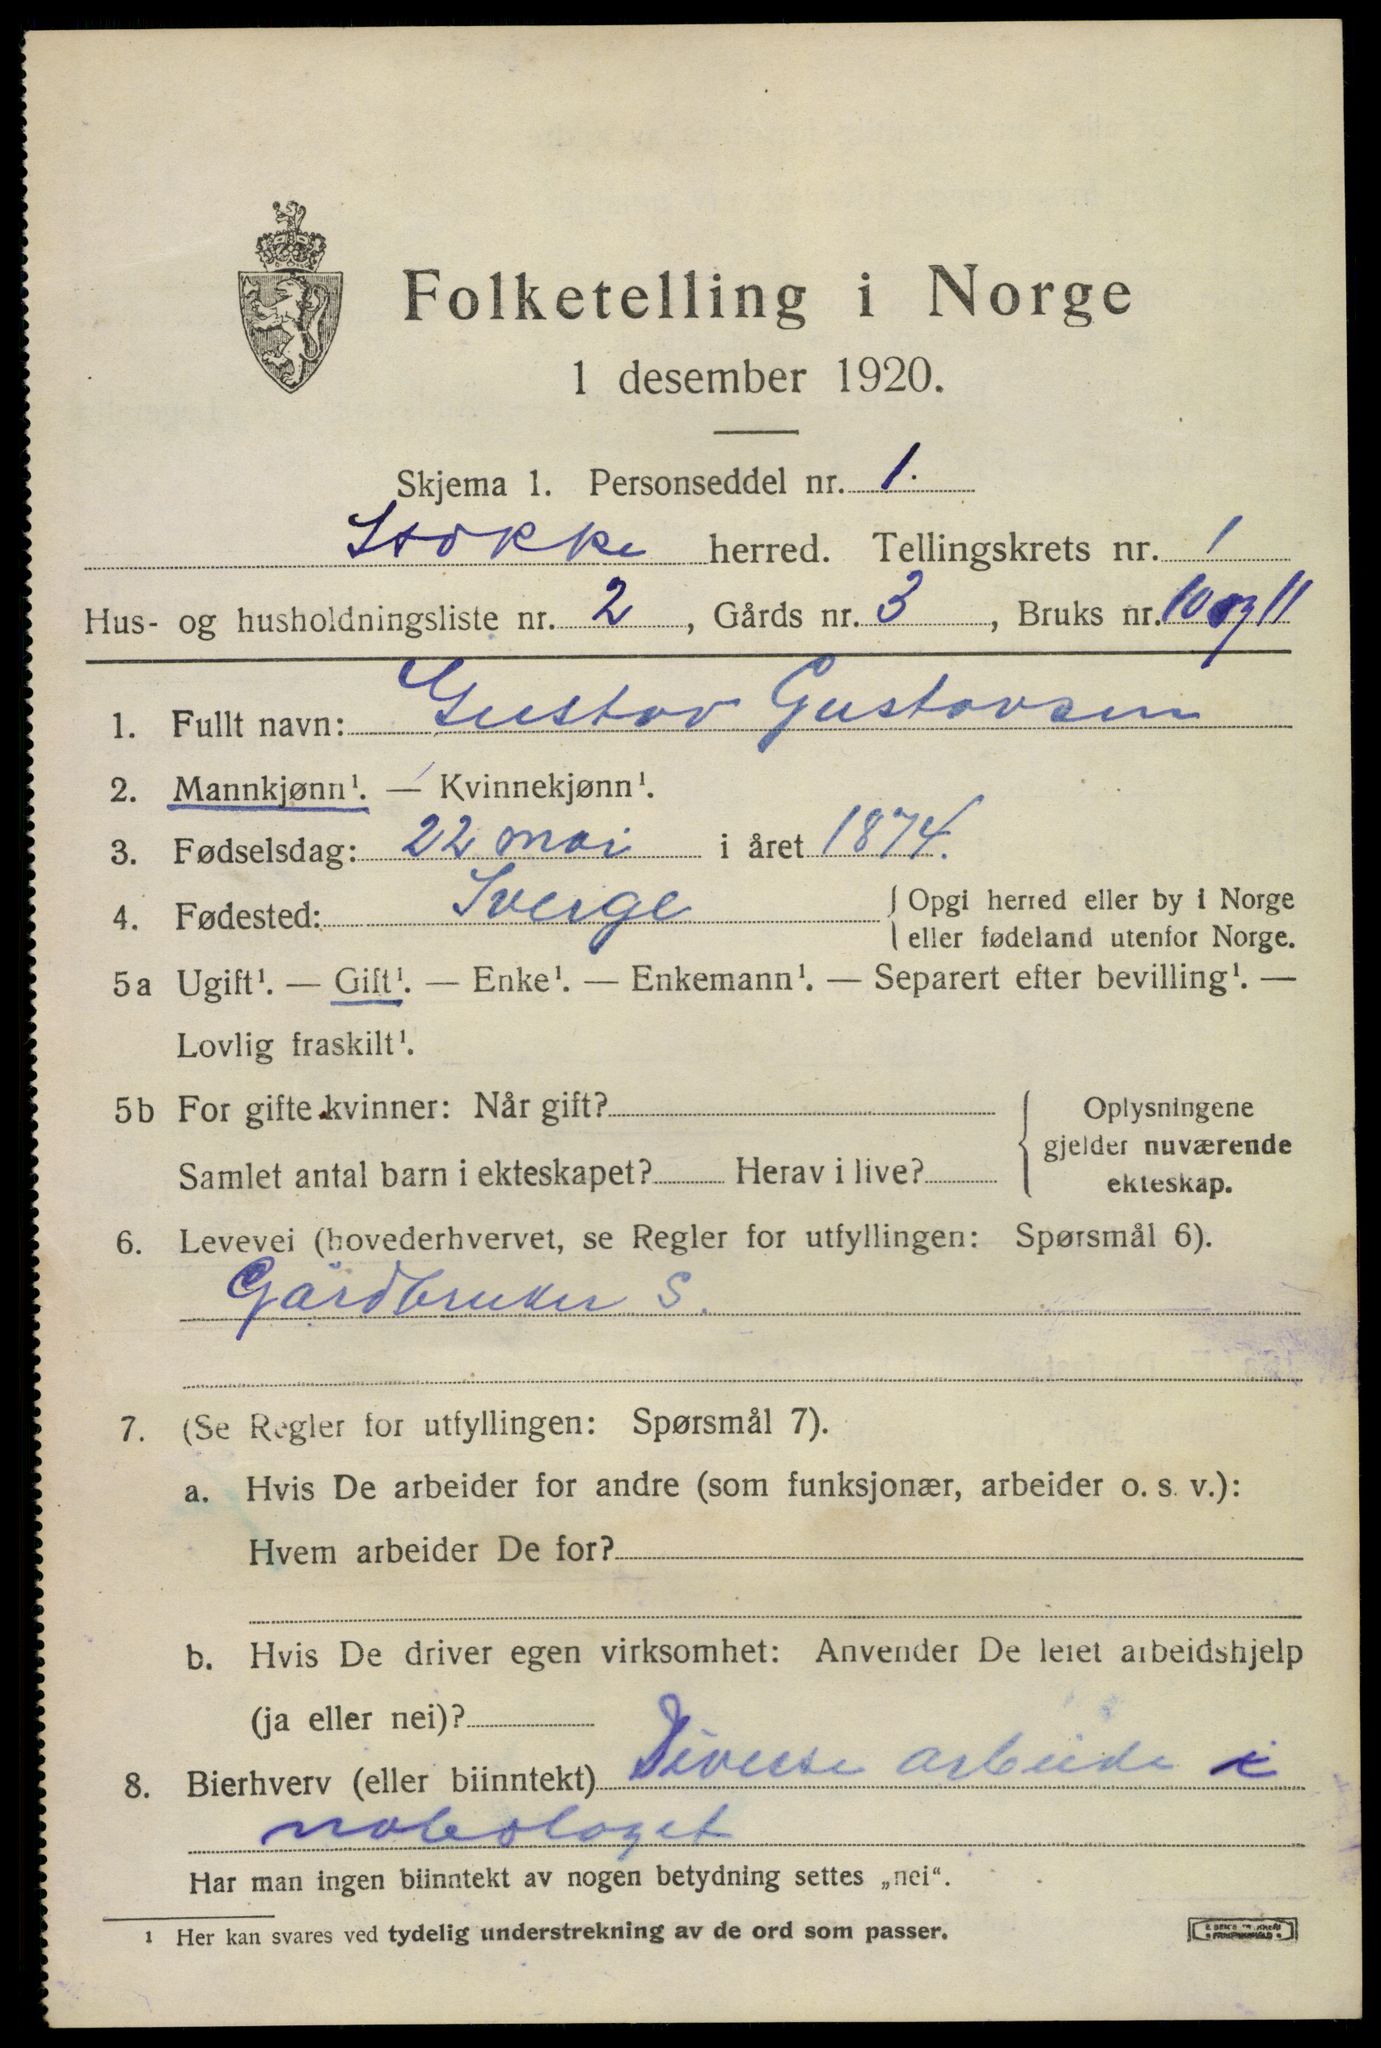 Folketelling i Norge
1 desember 1920.
Skjema 1. Personseddel nr. 1.
Stokke herred. Tellingskrets nr. 1
Hus- og husholdningsliste nr. 2, Gårds nr. 3, Bruks nr. 10 og 11
1. Fullt navn: Gustav Gustavsen
2. Mannkjønn¹. — Kvinnekjønn¹.
3. Fødselsdag: 22 mai i året 1874.
4. Fødested: Sverge { Opgi herred eller by i Norge
eller fødeland utenfor Norge.
5a Ugift¹. — Gift¹. — Enke¹. — Enkemann¹. — Separert efter bevilling¹. —
Lovlig fraskilt¹.
5b For gifte kvinner: Når gift? { Oplysningene
gjelder nuværende
Samlet antal barn i ekteskapet? Herav i live? ekteskap.
6. Levevei (hovederhvervet, se Regler for utfyllingen: Spørsmål 6).
Gårdbruker S.
7. (Se Regler for utfyllingen: Spørsmål 7).
a. Hvis De arbeider for andre (som funksjonær, arbeider o. s. v.):
Hvem arbeider De for?
b. Hvis De driver egen virksomhet: Anvender De leiet arbeidshjelp
(ja eller nei)?
8. Bierhverv (eller biinntekt) Diverse arbeide i
nabolaget
Har man ingen biinntekt av nogen betydning settes „nei“.
¹ Her kan svares ved tydelig understrekning av de ord som passer.